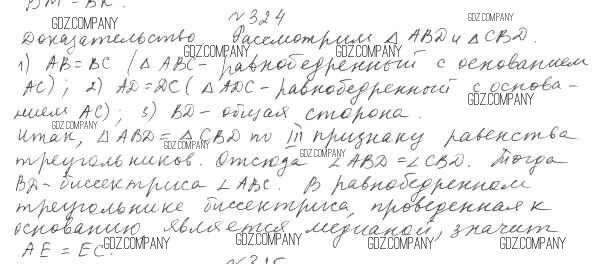 ВМ = ВК.
№ 324
GDZ.COMPANY GDZ.COMPANY
Доказательство Рассмотрим △ ABD и △ CBD.
GDZ.COMPANY GDZ.COMPANY
1) AB = BC (△ ABC - равнобедренный с основанием
AC); 2) AD = DC (△ ADC - равнобедренный с основа-
GDZ.COMPANY
нием AC); 3) BD - общая сторона.
GDZ.COMPANY
Итак, △ ABD = △ CBD по III признаку равенства
GDZ.COMPANY GDZ.COMPANY
треугольников. Отсюда ∠ABD = ∠CBD. Тогда
BD - биссектриса ∠ ABC. В равнобедренном
треугольнике биссектриса, проведенная к
основанию является медианой, значит
AE = EC.
GDZ.COMPANY GDZ.COMPANY GDZ.COMPANY GDZ.COMPANY
№ 325